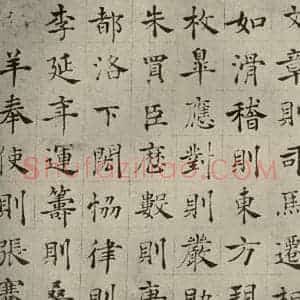 文章則司馬遷相
如滑稽則東方朔
枚皋應對則嚴助
朱買臣歷數則唐
都洛下閎恊律則
李延年運籌則桑
羊奉使則張騫